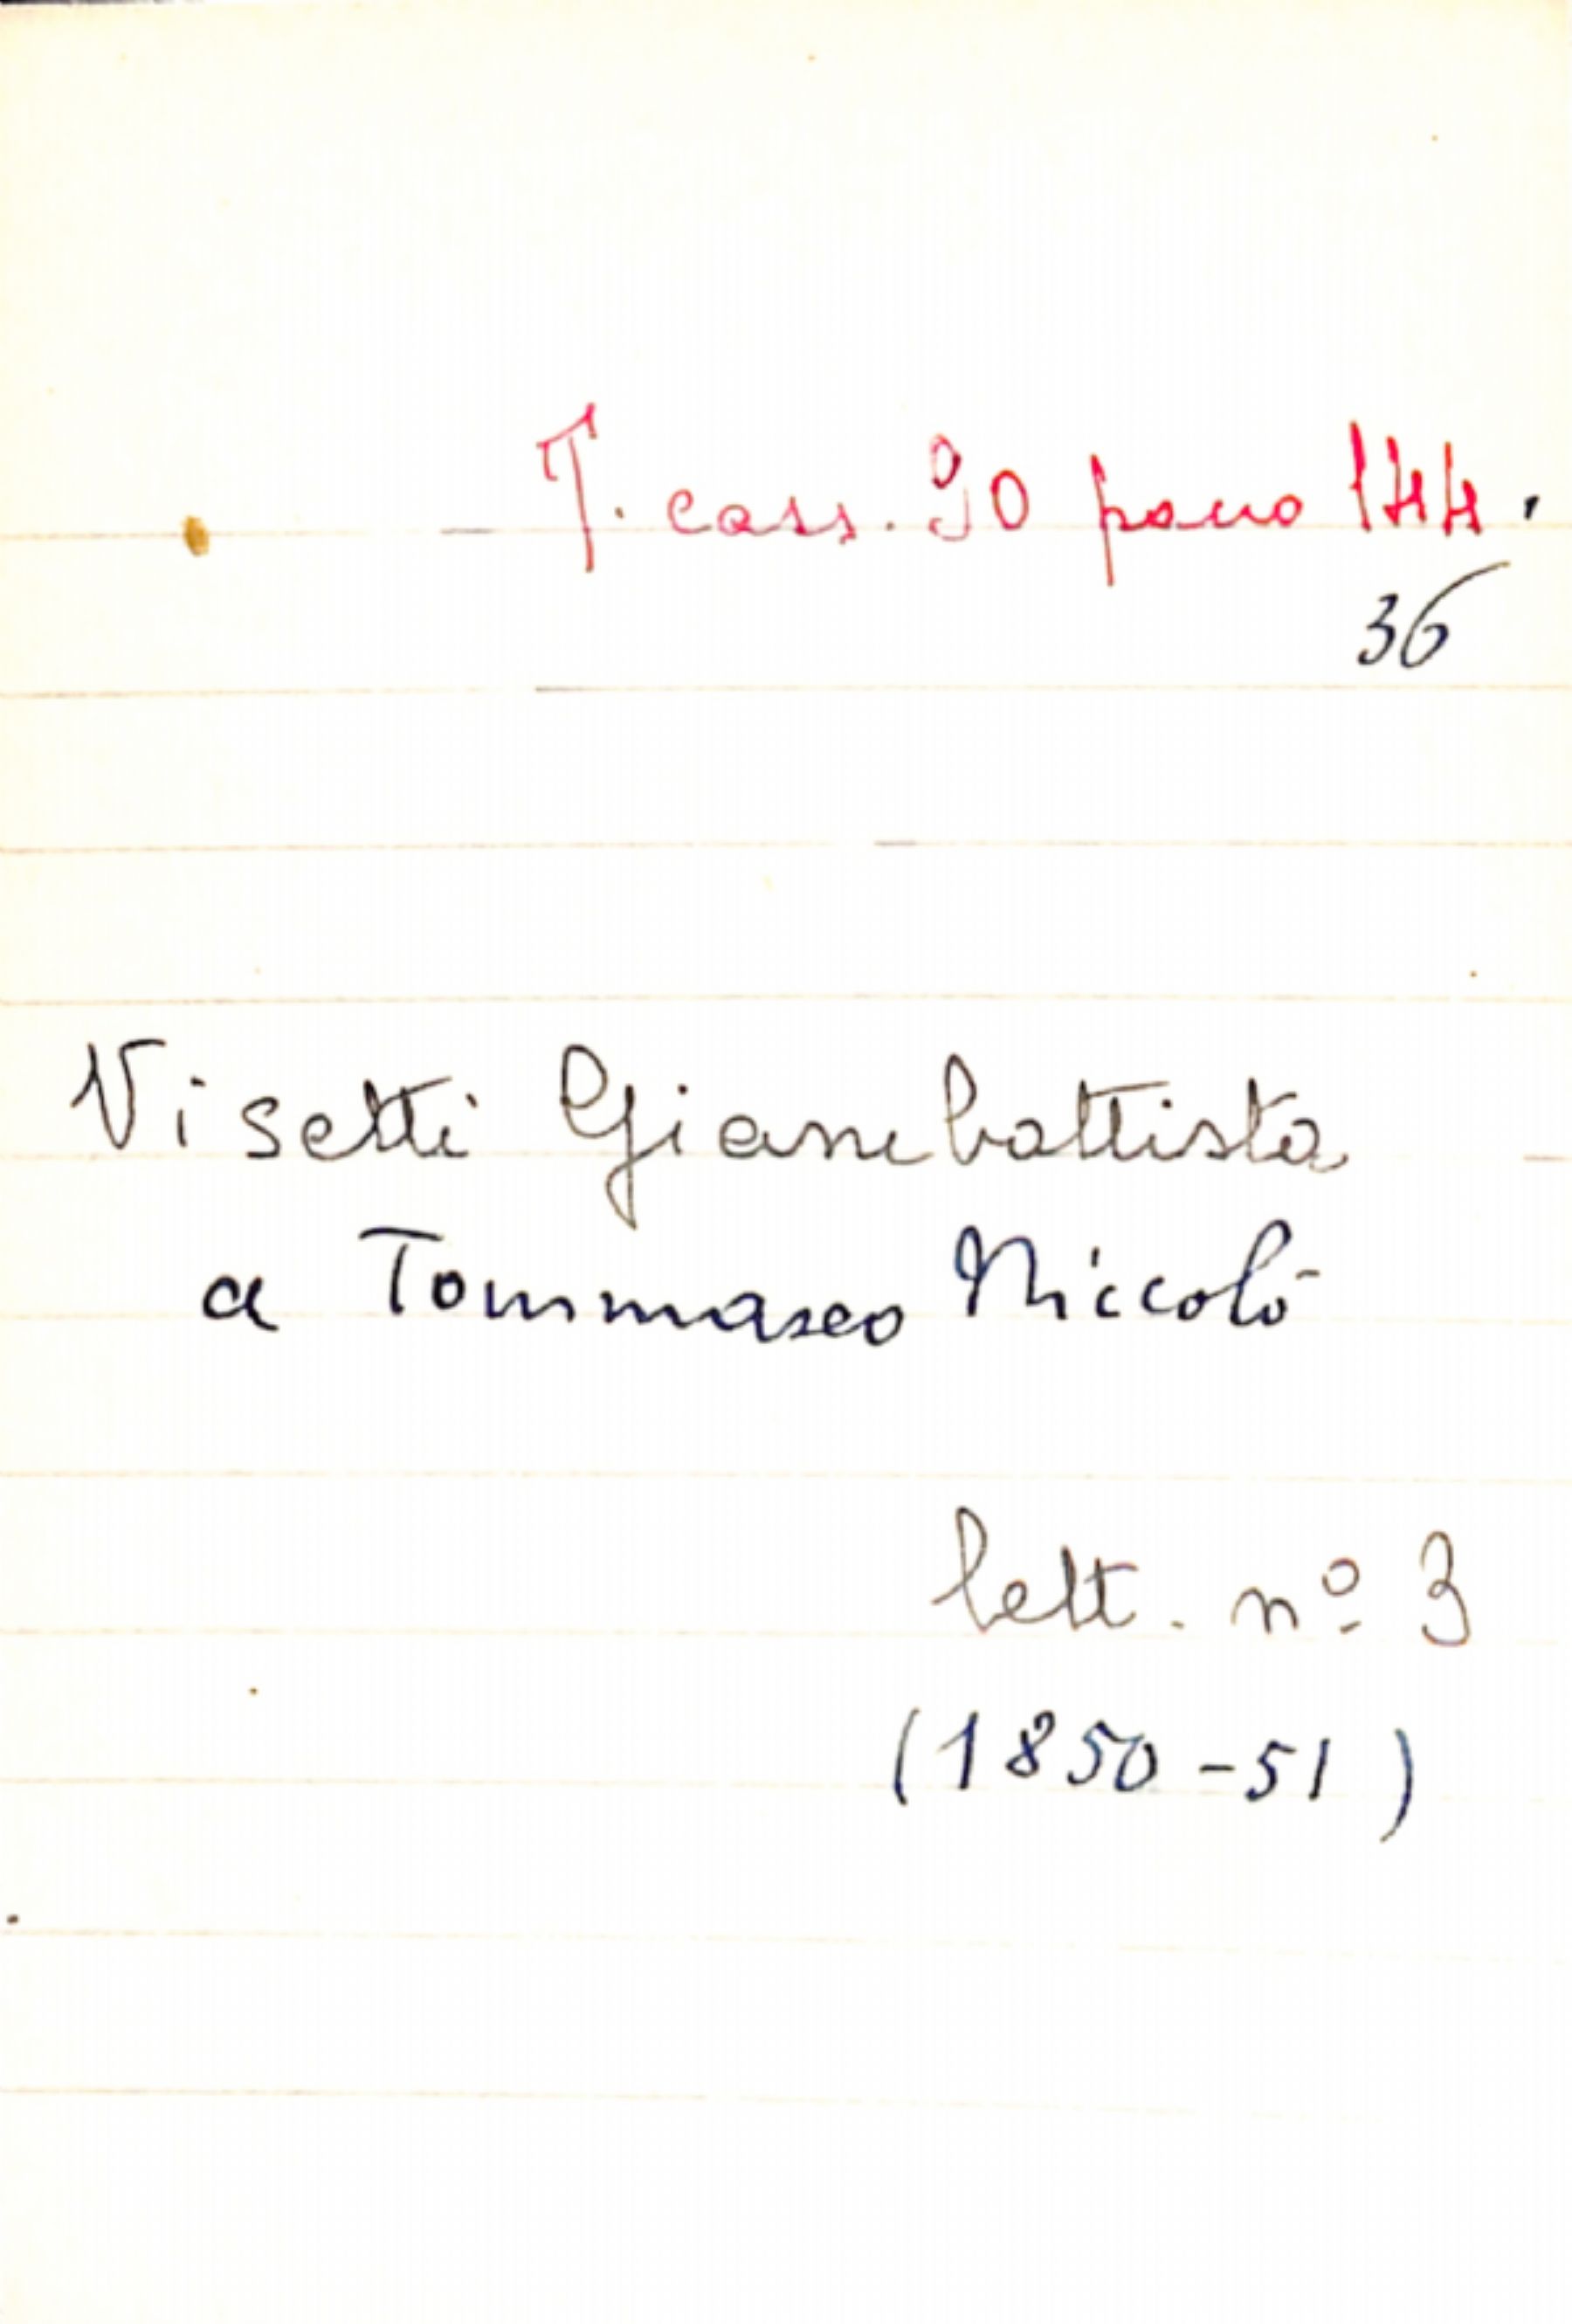 T. cass. 90 panno 144.
36
Visetti Giambattista
a Tommaseo Niccolò
lett. nº 3
(1850-51)